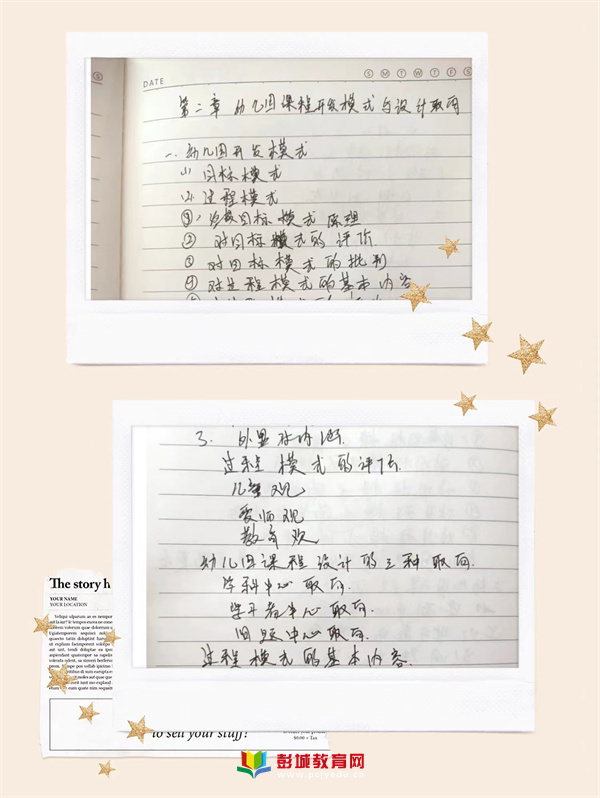 DATE
S M T W T F S
第二章 幼儿园课程开发模式与设计取向
一、幼儿园开发模式
(1) 目标模式
(2) 过程模式
目标模式原理
② 对目标模式的评价
③ 对目标模式的批判
④ 对过程模式的基本内容
3.
过程模式的评估
儿童观
教师观
教育观
幼儿园课程设计的三种取向
学科中心取向.
学习者中心取向.
问题中心取向.
过程模式的基本内容.
The story h
YOUR NAME
YOUR LOCATION
to sell your stuff?
彭城教育网
www.pcjyedu.cn